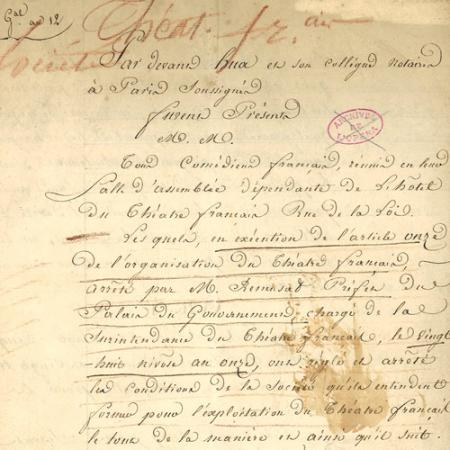 Gal an 12
Théat. fr.ais
Société
Par devant Hua et son collègue notaires
à Paris Soussignés
furent Présens
M. M.
Tous Comédiens français, réunis en leur
Salle d'assemblée dépendante de L'hôtel
du Théatre français Rue de la Loi.
Lesquels, en exécution de l'article onze
de l'organisation du Théatre français,
arrêté par M. Remusat Préfet du
Palais du Gouvernement, chargé de la
Surintendance du Théatre français, le vingt
huit nivôse an onze, ont réglé et arrêté
les conditions de la Société qu'ils entendent
former pour l'exploitation du Théatre français
le tout de la manière et ainsi qu'il suit.
ARCHIVES
DE
L'OPERA